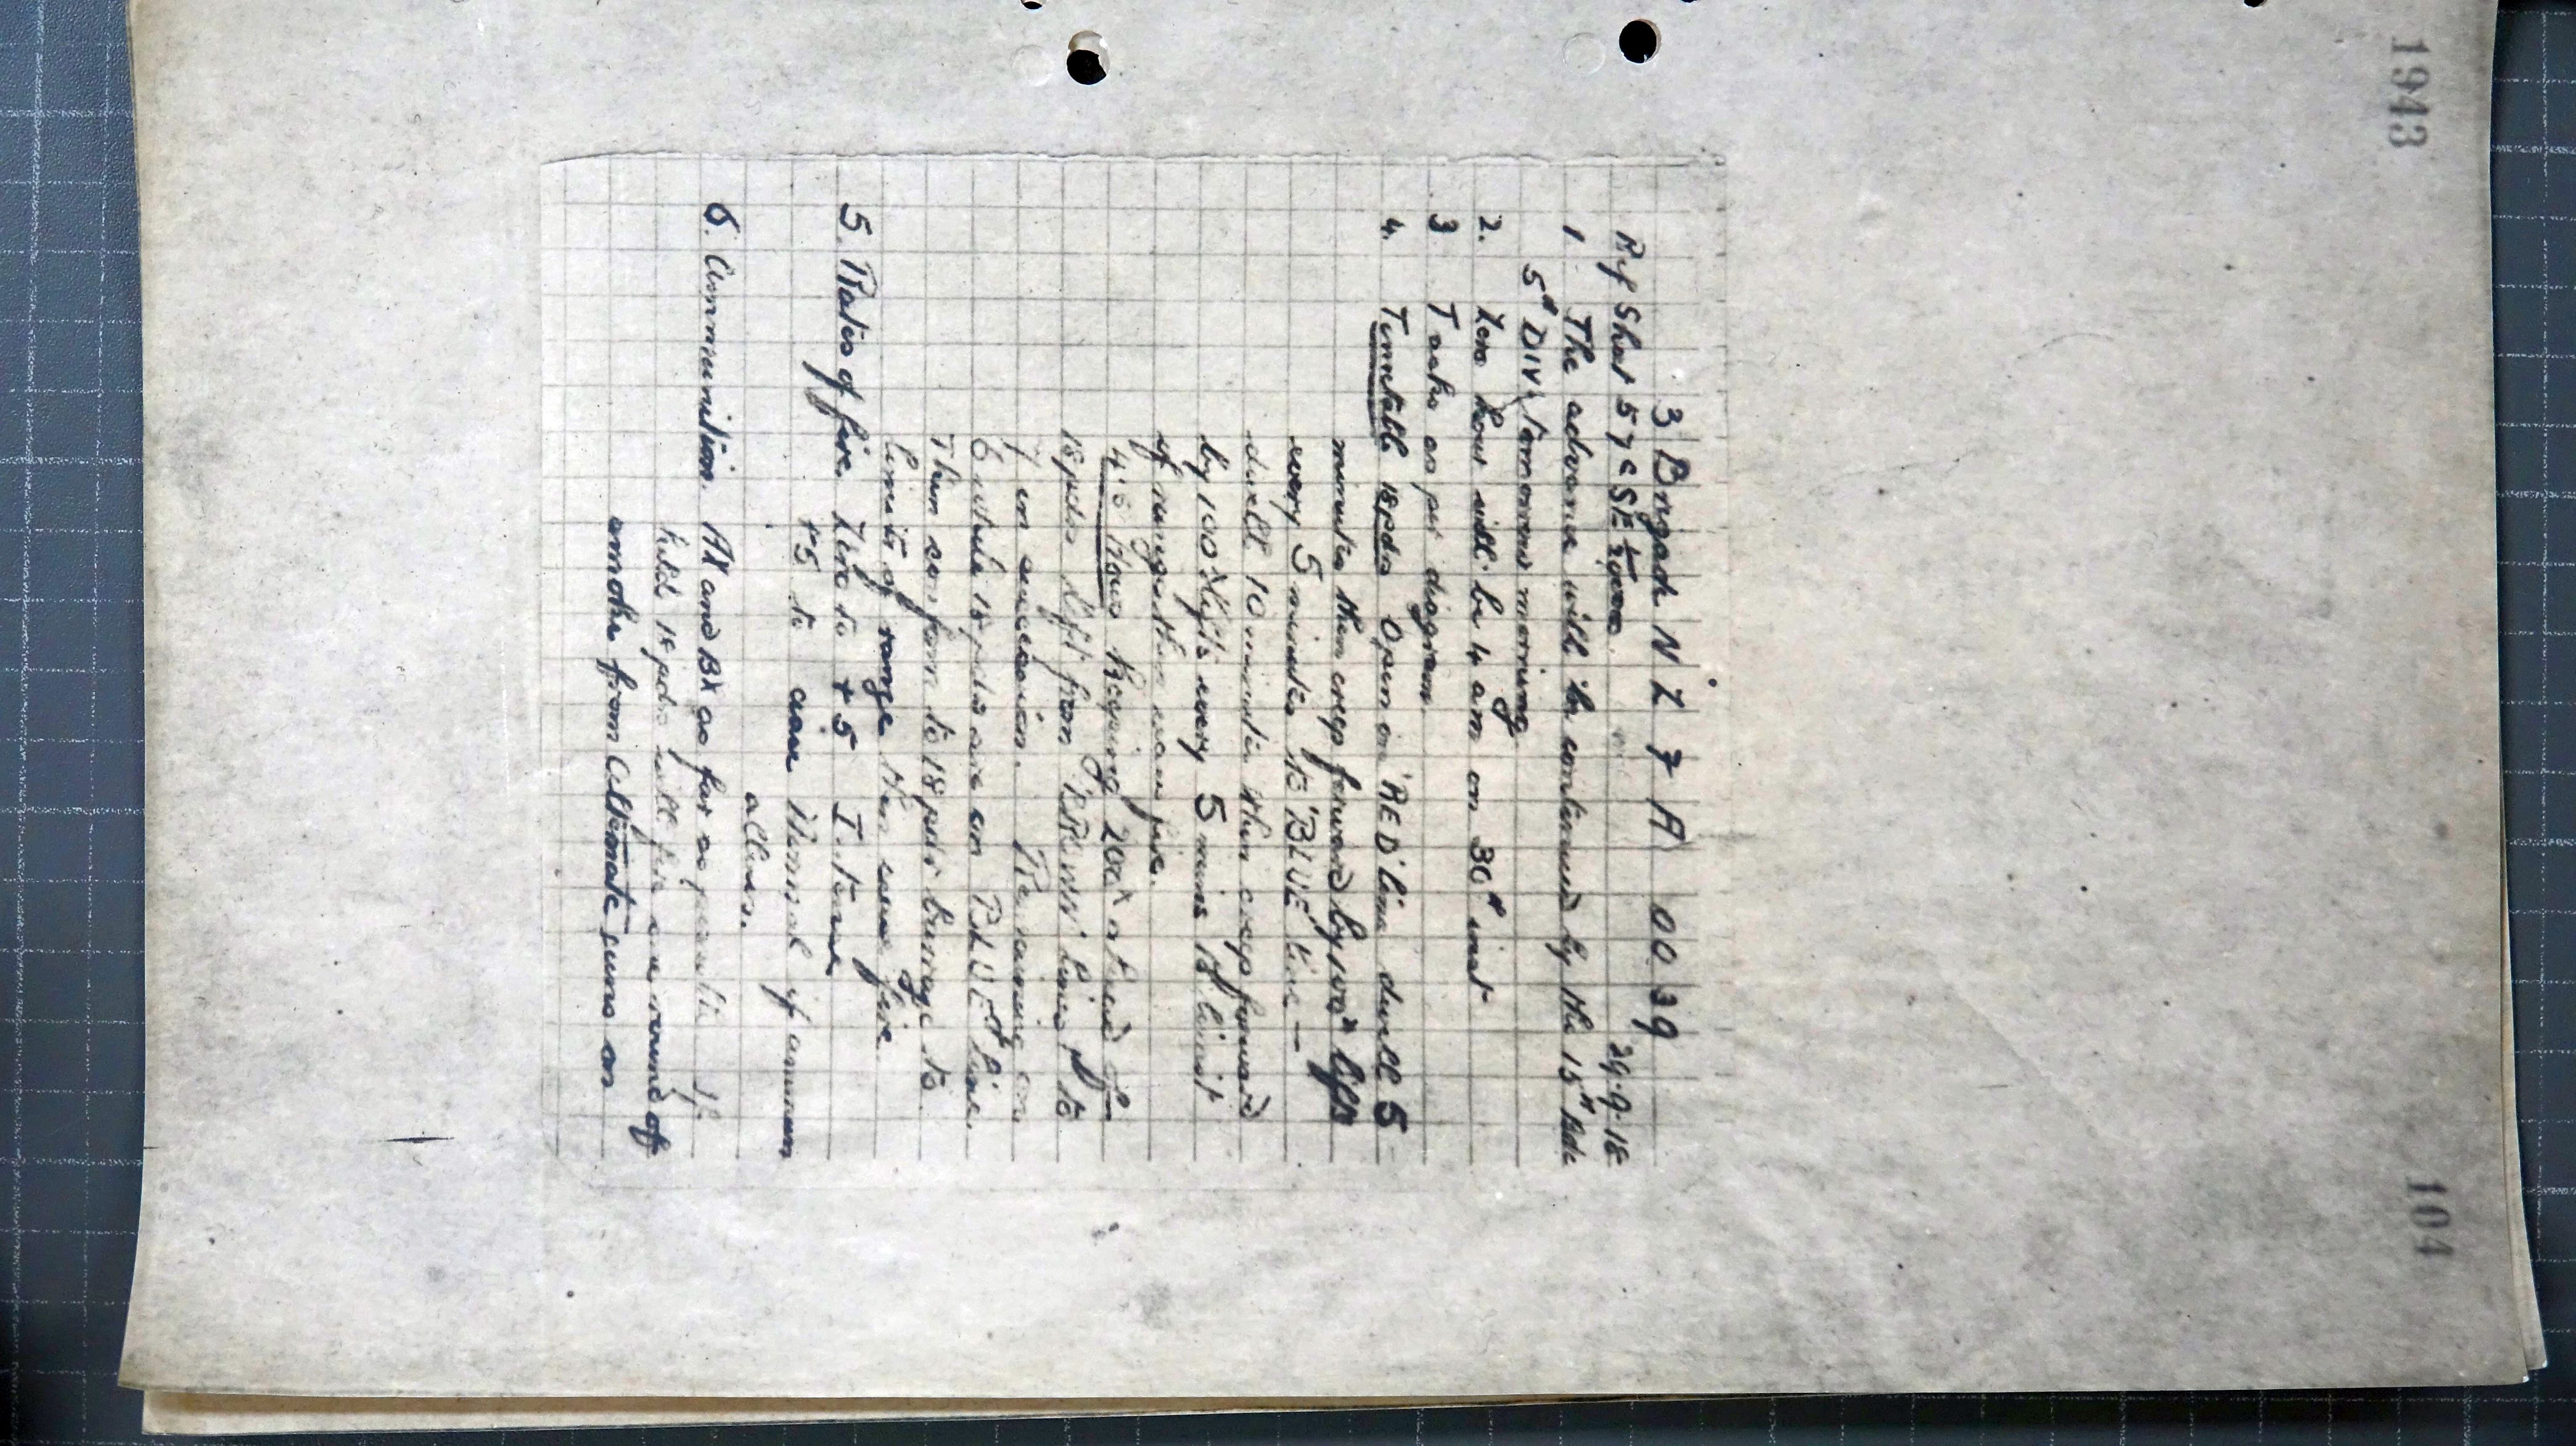 1943
104
3 Brigade N Z F A OO 39
29.9.18
Ref Sheet 57c SE 1/20000.
1 The advance will be continued by the 15th Bde
5th DIV tomorrow morning.
2. Zero hour will be 4 am on 30th inst
3 Tasks as per diagram.
4. Timetable 18pdrs Open on 'RED' line dwell 5
minutes then creep forward by 100x lifts
every 5 minutes to 'BLUE' line —
dwell 10 minutes then creep forward
by 100x lifts every 5 mins to limit
of range then cease fire.
4.5 Hows Keeping 200x ahead of
18 pdrs lift from BROWN lines to
in succession. Remaining on
6 while 18 pdrs are on BLUE line.
Then conform to 18 pdr barrage to
limit of range then cease fire.
5. Rates of fire. Zero to +5 Intense
+5 to cease Normal if ammun
allows.
6. Ammunition. AX and BX as far as possible If
held 18 pdrs will fire one round of
smoke from alternate guns on